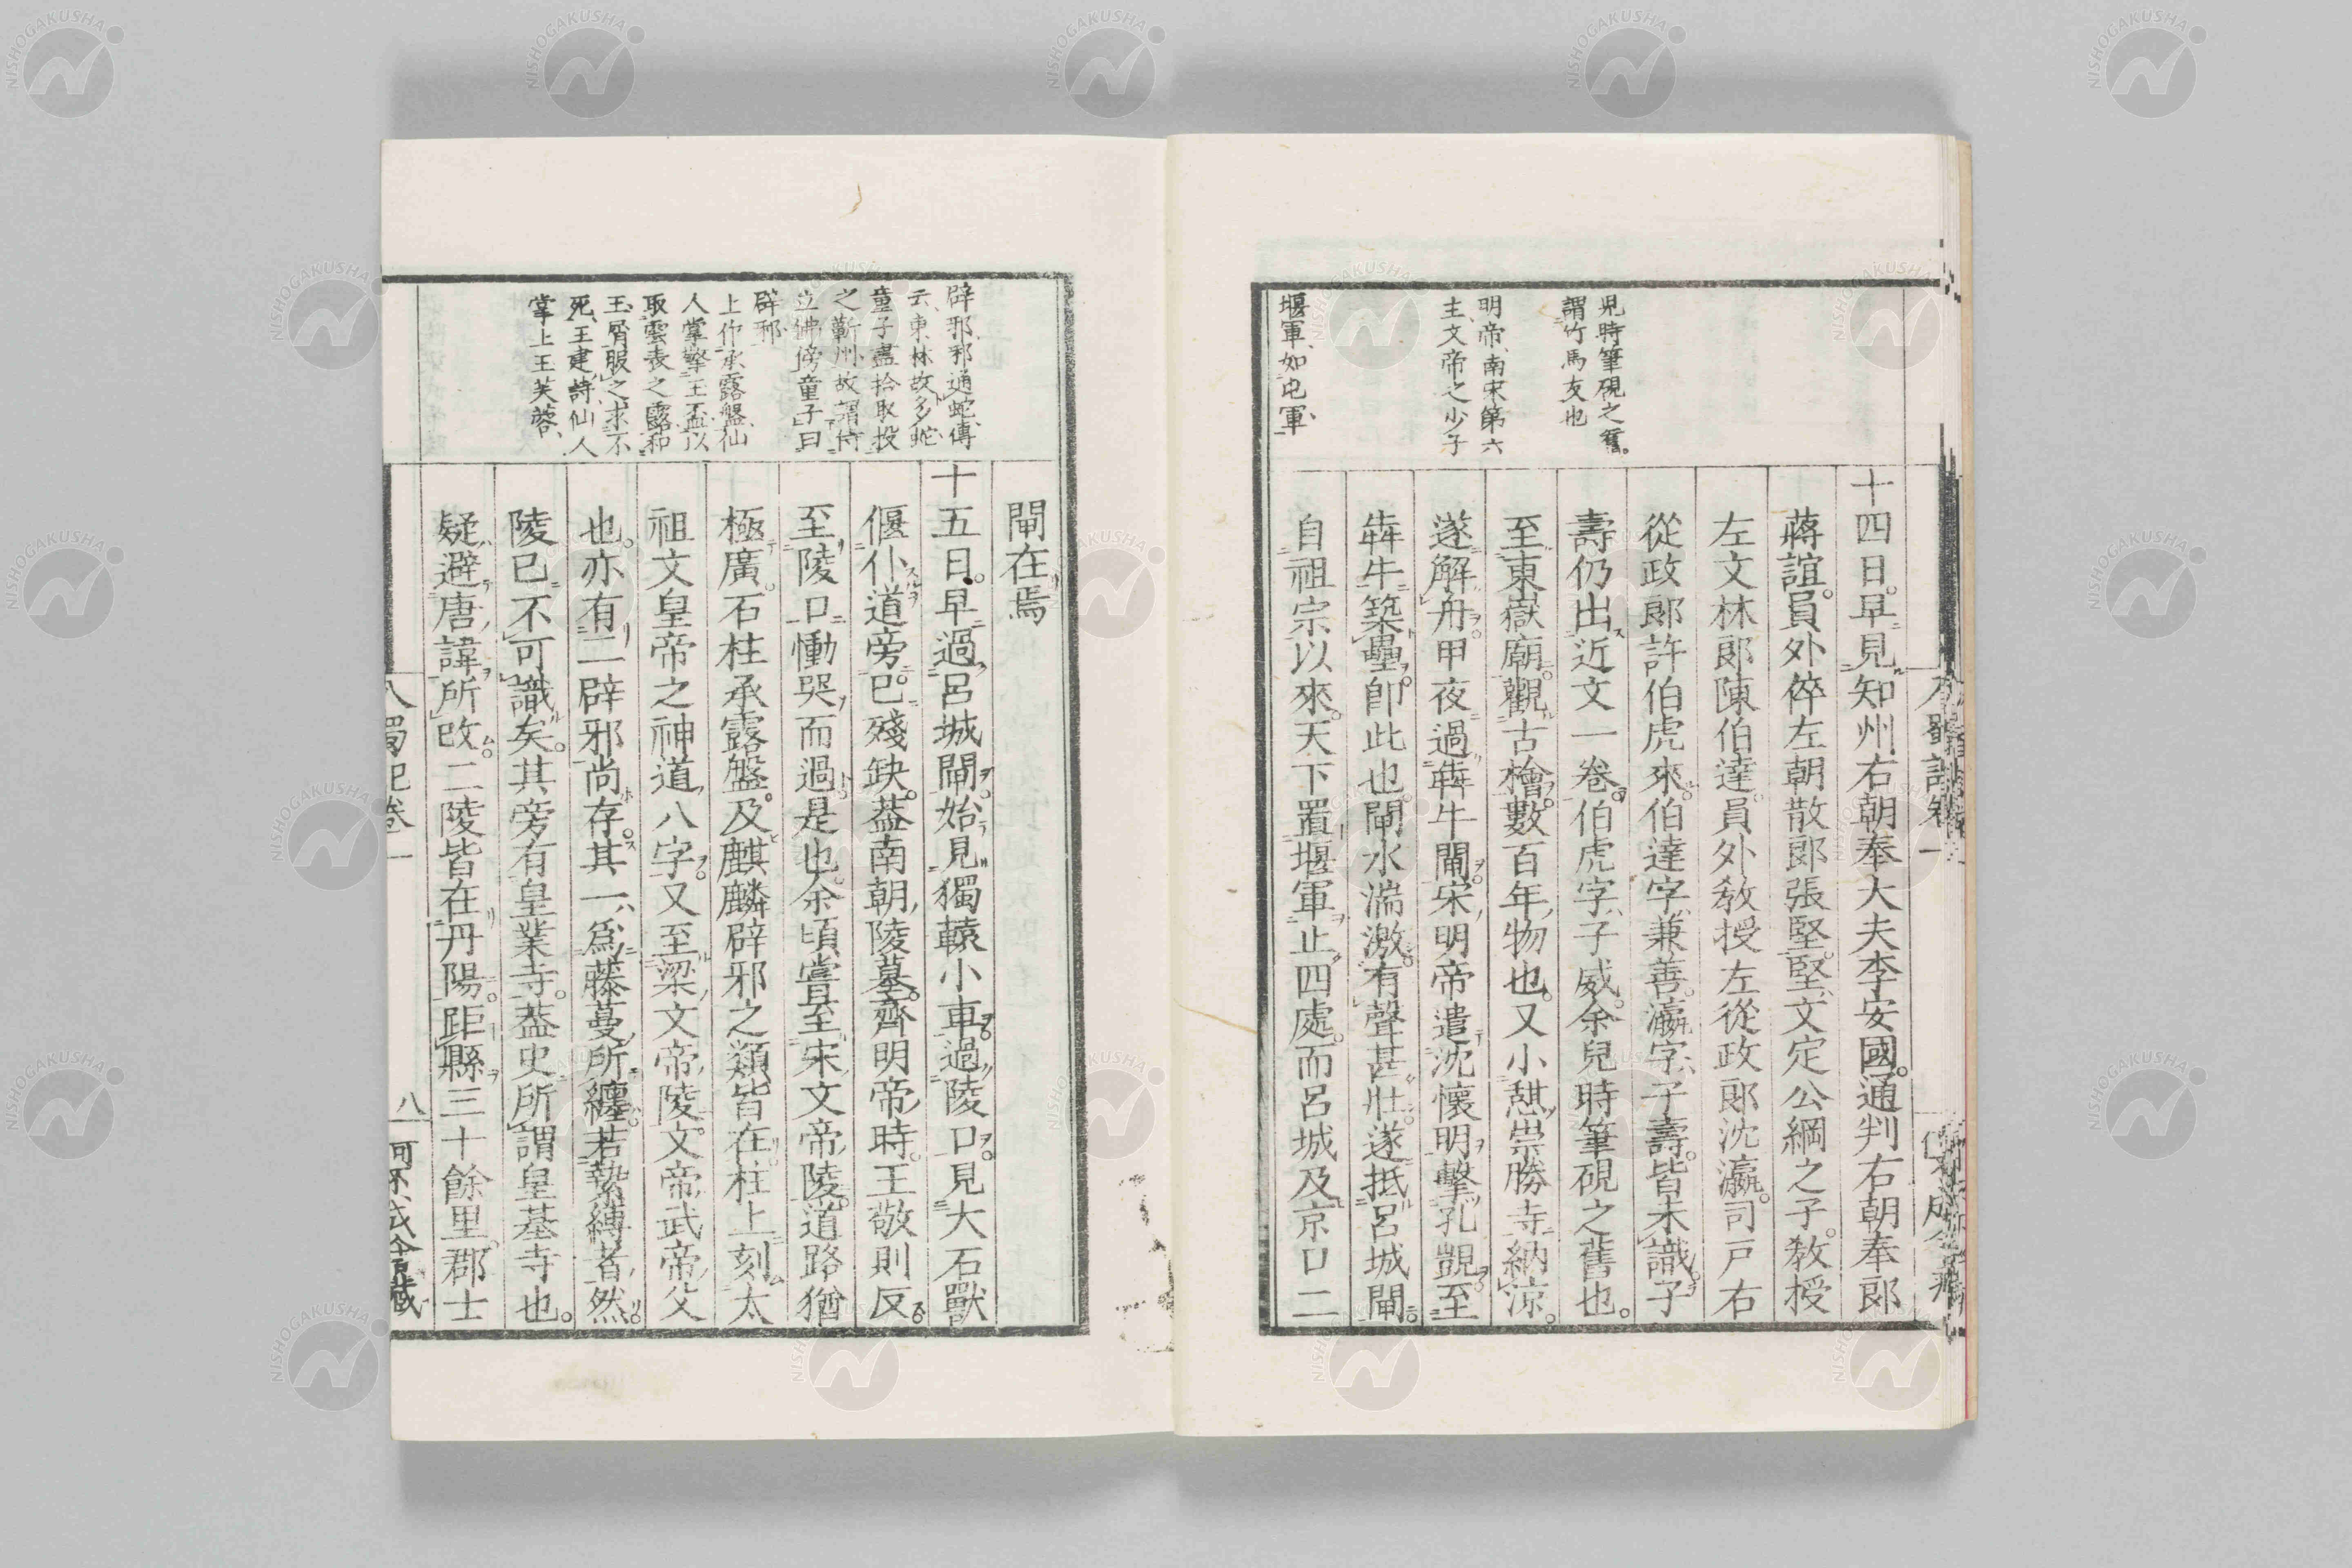 兒時筆硯之舊。
謂竹馬友也
明帝、南宋第六
主、文帝之少子
堰軍、如屯軍、
十四日。早見知州右朝奉大夫李安國。通判右朝奉郎
蔣誼。員外倅左朝散郎張堅。堅文定公綱之子。教授
左文林郎陳伯達。員外教授左從政郎沈瀛。司戸右
從政郎許伯虎來。伯達字兼善。瀛字子壽。皆未識。子
壽仍出近文一卷。伯虎字子威。余兒時筆硯之舊也。
至東嶽廟。觀古檜。數百年物也。又小憇崇勝寺納涼。
遂解舟。甲夜過犇牛閘。宋明帝遣沈懷明擊孔覬。至
犇牛築壘。卽此也。閘水湍激。有聲甚壯。遂抵呂城閘。
自祖宗以來。天下置堰軍止四處。而呂城及京口二
閘在焉
辟邪、邪通蛇、傳
云、東林故多蛇
童子盡拾取投
之蘄州、故謂侍
立佛傍童子曰
辟邪
上作承露盤仙
人掌擎玉盃以
取雲表之露和
玉屑服之求不
死、王建詩、仙人
掌上玉芙蓉、
十五日。早過呂城閘。始見獨轅小車。過陵口。見大石獸
偃仆道旁。已殘缺。葢南朝陵墓。齊明帝時。王敬則反
至陵口慟哭而過是也。余頃嘗至宋文帝陵。道路猶
極廣。石柱承露盤。及麒麟辟邪之類皆在。柱上刻太
祖文皇帝之神道八字。又至梁文帝陵。文帝武帝父
也。亦有二辟邪尚存。其一爲藤蔓所纏。若縶縛者。然
陵已不可識矣。其旁有皇業寺。葢史所謂皇基寺也。
疑避唐諱所改。二陵皆在丹陽。距縣三十餘里。郡士
入蜀記卷一
八